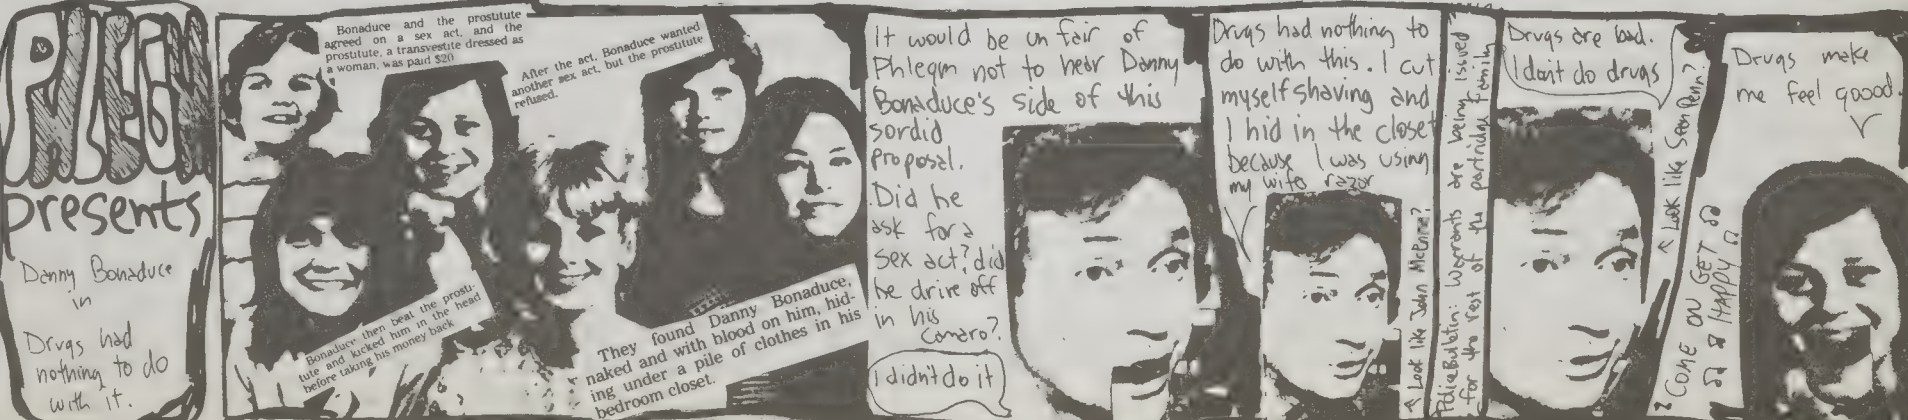 PHLEGM
presents
Danny Bonaduce
in
Drugs had
nothing to do
with it.
Bonaduce and the prostitute
agreed on a sex act, and the
prostitute, a transvestite dressed as
a woman, was paid $20
After the act, Bonaduce wanted
another sex act, but the prostitute
refused.
Bonaduce then beat the prosti-
tute and kicked him in the head
before taking his money back
They found Danny Bonaduce,
naked and with blood on him, hid-
ing under a pile of clothes in his
bedroom closet.
It would be un fair of
Phlegm not to hear Danny
Bonaduce's side of this
sordid
proposal.
Did he
ask for a
sex act? did
he drive off
in his
Camaro?
I didn't do it
Drugs had nothing to
do with this. I cut
myself shaving and
I hid in the closet
because I was using
my wifes razor
↖ Look like John McEnroe?
Police Bulletin: Warrants are being issued
for the rest of the partridge family
Drugs are bad.
I don't do drugs
↖ Look like Sean Penn?
♫ COME ON GET ♫
♫ HAPPY ♫
Drugs make
me feel goood.